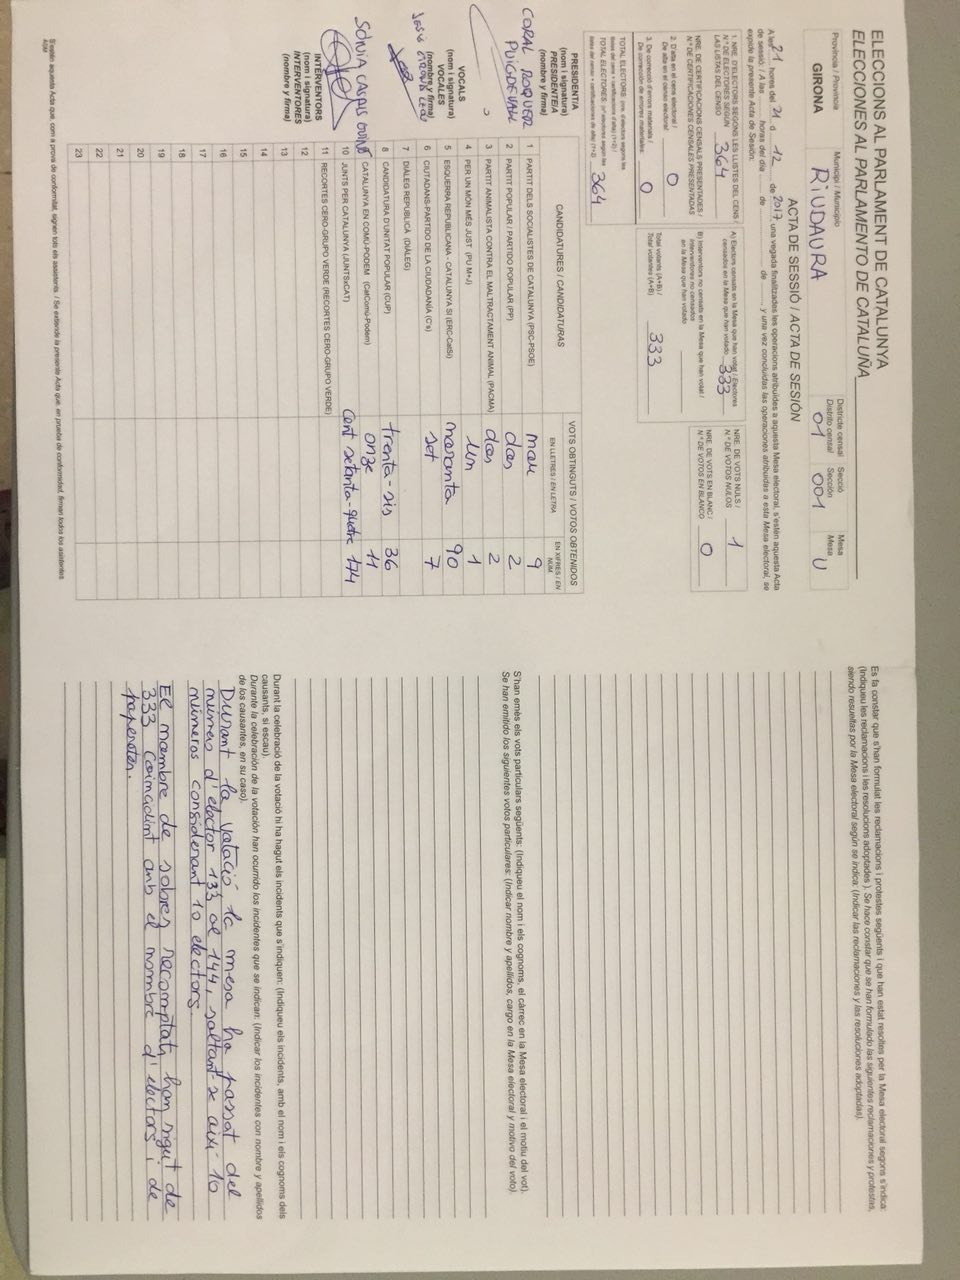 ELECCIONS AL PARLAMENT DE CATALUNYA
ELECCIONES AL PARLAMENTO DE CATALUÑA
Província / Provincia
GIRONA
Municipi / Municipio
RIUDAURA
Districte censal
Distrito censal
01
Secció
Sección
001
Mesa
Mesa
U
ACTA DE SESSIÓ / ACTA DE SESIÓN
A les 21 hores del 21 d 12 de 2017 una vegada finalitzades les operacions atribuïdes a aquesta Mesa electoral, s'estén aquesta Acta
de sessió / A las ...... horas del día ...... de ...... de ......, y una vez concluidas las operaciones atribuidas a esta Mesa electoral, se
expide la presente Acta de Sesión:
1. NRE. D'ELECTORS SEGONS LES LLISTES DEL CENS /
N.º DE ELECTORES SEGÚN
LAS LISTAS DEL CENSO
364
NRE. DE CERTIFICACIONS CENSALS PRESENTADES /
N.º DE CERTIFICACIONES CENSALES PRESENTADAS
2. D'alta en el cens electoral /
De alta en el censo electoral
0
3. De correcció d'errors materials /
De corrección de errores materiales
0
364
A) Electors censats en la Mesa que han votat / Electores
censados en la Mesa que han votado
333
B) Interventors no censats en la Mesa que han votat /
Interventores no censados
en la Mesa que han votado
Total votants (A+B) /
Total votantes (A+B)
333
NRE. DE VOTS NULS /
N.º DE VOTOS NULOS
1
NRE. DE VOTS EN BLANC /
N.º DE VOTOS EN BLANCO
0
PRESIDENT/A
(nom i signatura)
PRESIDENTE/A
(nombre y firma)
CORAL ROQUER
PUIGDEVALL
VOCALS
(nom i signatura)
VOCALES
(nombre y firma)
SÒNIA CASALS
INTERVENTORS
(nom i signatura)
INTERVENTORES
(nombre y firma)
CANDIDATURES / CANDIDATURAS
VOTS OBTINGUTS / VOTOS OBTENIDOS
EN LLETRES / EN LETRA
EN XIFRES / EN NÚM.
1 PARTIT DELS SOCIALISTES DE CATALUNYA (PSC-PSOE) nou 9
2 PARTIT POPULAR / PARTIDO POPULAR (PP) dos 2
3 PARTIT ANIMALISTA CONTRA EL MALTRACTAMENT ANIMAL (PACMA) dos 2
4 PER UN MÓN MÉS JUST (PUM+J) un 1
5 ESQUERRA REPUBLICANA - CATALUNYA SÍ (ERC-CatSí) noranta 90
6 CIUTADANS-PARTIDO DE LA CIUDADANÍA (C's) set 7
7 DIÀLEG REPUBLICÀ (DIÀLEG)
8 CANDIDATURA D'UNITAT POPULAR (CUP) trenta-sis 36
9 CATALUNYA EN COMÚ-PODEM (CatComú-Podem) onze 11
10 JUNTS PER CATALUNYA (JUNTSxCAT) cent setanta-quatre 174
11 RECORTES CERO-GRUPO VERDE (RECORTES CERO-GRUPO VERDE)
12
13
14
15
16
17
18
19
20
21
22
23
S'estén aquesta Acta que, com a prova de conformitat, signen tots els assistents. / Se extiende la presente Acta que, en prueba de conformidad, firman todos los asistentes.
Es fa constar que s'han formulat les reclamacions i protestes següents i que han estat resoltes per la Mesa electoral segons s'indica:
(Indiqueu les reclamacions i les resolucions adoptades). Se hace constar que se han formulado las siguientes reclamaciones y protestas,
siendo resueltas por la Mesa electoral según se indica: (Indicar las reclamaciones y las resoluciones adoptadas).
S'han emès els vots particulars següents: (Indiqueu el nom i els cognoms, el càrrec en la Mesa electoral i el motiu del vot).
Se han emitido los siguientes votos particulares: (Indicar nombre y apellidos, cargo en la Mesa electoral y motivo del voto).
Durant la celebració de la votació hi ha hagut els incidents que s'indiquen: (Indiqueu els incidents, amb el nom i els cognoms dels
causants, si escau).
Durante la celebración de la votación han ocurrido los incidentes que se indican: (Indicar los incidentes con nombre y apellidos
de los causantes, en su caso).
Durant la votació la mesa ha passat del
número d'elector 133 al 144, saltant-se així 10
números considerant 10 electors.
El nombre de sobres recomptats han sigut de
333 coincidint amb el nombre d'electors i de
paperetes.